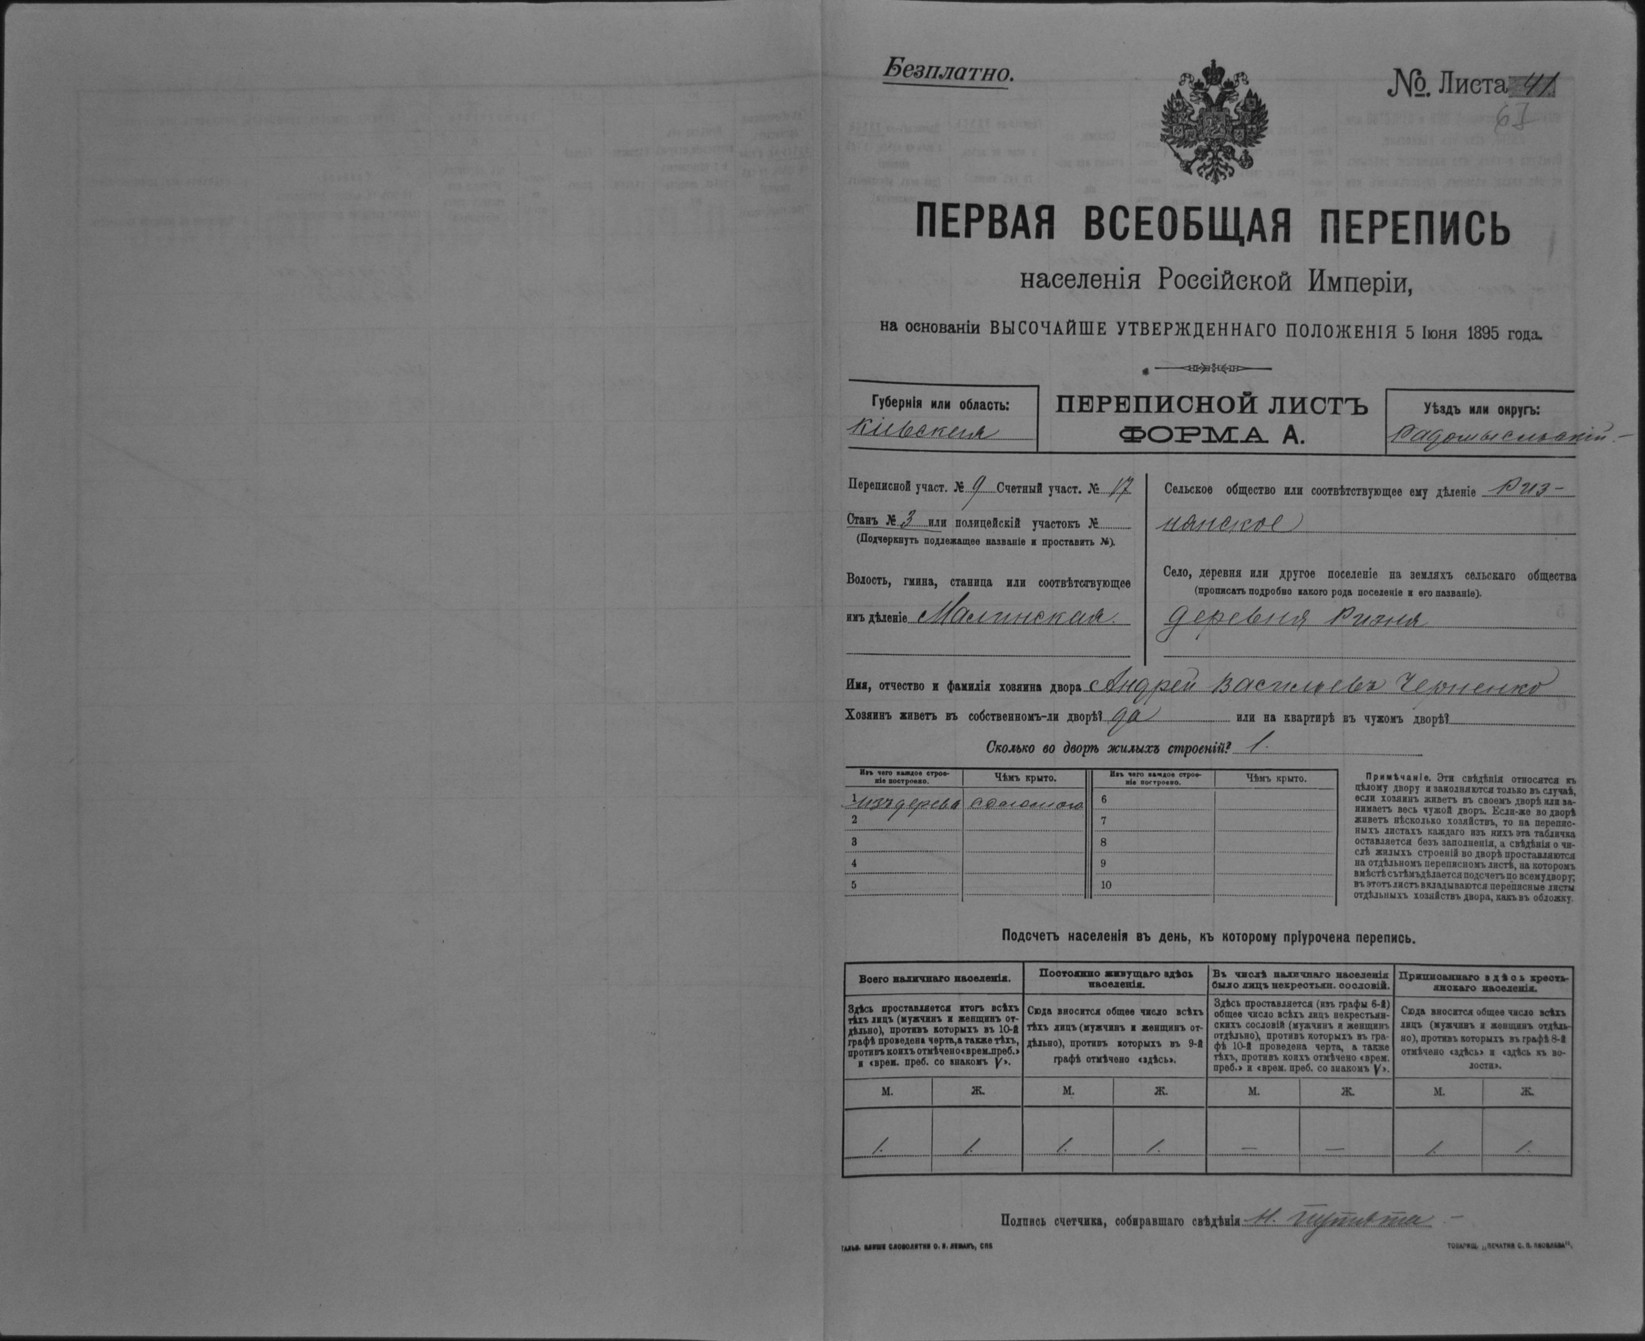 Безплатно.
№ Листа 41
67
ПЕРВАЯ ВСЕОБЩАЯ ПЕРЕПИСЬ
населенія Россійской Имперіи,
на основаніи ВЫСОЧАЙШЕ УТВЕРЖДЕННАГО ПОЛОЖЕНІЯ 5 Іюня 1895 года.
Губернія или область:
Кіевская
ПЕРЕПИСНОЙ ЛИСТЪ
ФОРМА А.
Уѣздъ или округъ:
Радомысльскій.
Переписной участ. № 9 Счетный участ. № 17
Станъ № 3 или полицейскій участокъ №
(Подчеркнуть подлежащее названіе и проставить №).
Волость, гмина, станица или соотвѣтствующее
имъ дѣленіе Малинская.
Сельское общество или соотвѣтствующее ему дѣленіе Риз-
нанское
Село, деревня или другое поселеніе на земляхъ сельскаго общества
(прописать подробно какого рода поселеніе и его названіе).
деревня Ризня
Имя, отчество и фамилія хозяина двора Андрей Васильевъ
Хозяинъ живетъ въ собственномъ-ли дворѣ? да или на квартирѣ въ чужомъ дворѣ?
Сколько во дворѣ жилыхъ строеній? 1.
Изъ чего каждое строе-
ніе построено.
Чѣмъ крыто.
Изъ чего каждое строе-
ніе построено.
Чѣмъ крыто.
1 изъ дерева соломою 6
2 7
3 8
4 9
5 10
Примѣчаніе. Эти свѣдѣнія относятся къ
цѣлому двору и заполняются только въ случаѣ,
если хозяинъ живетъ въ своемъ дворѣ или за-
нимаетъ весь чужой дворъ. Если-же во дворѣ
живетъ нѣсколько хозяйствъ, то на перепис-
ныхъ листахъ каждаго изъ нихъ эта табличка
оставляется безъ заполненія, а свѣдѣнія о чи-
слѣ жилыхъ строеній во дворѣ проставляются
на отдѣльномъ переписномъ листѣ, на которомъ
вмѣстѣ съ тѣмъ дѣлается подсчетъ по всему двору;
въ этотъ листъ вкладываются переписные листы
отдѣльныхъ хозяйствъ двора, какъ въ обложку.
Подсчетъ населенія въ день, къ которому пріурочена перепись.
Всего наличнаго населенія.
Здѣсь проставляется итогъ всѣхъ
тѣхъ лицъ (мужчинъ и женщинъ от-
дѣльно), противъ которыхъ въ 10-й
графѣ проведена черта, а также тѣхъ,
противъ коихъ отмѣчено «врем. преб.»
и «врем. преб. со знакомъ V».
Постоянно живущаго здѣсь
населенія.
Сюда вносится общее число всѣхъ
тѣхъ лицъ (мужчинъ и женщинъ от-
дѣльно), противъ которыхъ въ 9-й
графѣ отмѣчено «здѣсь».
Въ числѣ наличнаго населенія
было лицъ некрестьян. сословій.
Здѣсь проставляется (изъ графы 6-й)
общее число всѣхъ лицъ некрестьян-
скихъ сословій (мужчинъ и женщинъ
отдѣльно), противъ которыхъ въ гра-
фѣ 10-й проведена черта, а также
тѣхъ, противъ коихъ отмѣчено «врем.
преб.» и «врем. преб. со знакомъ V».
Приписаннаго здѣсь кресть-
янскаго населенія.
Сюда вносится общее число всѣхъ
лицъ (мужчинъ и женщинъ отдѣль-
но), противъ которыхъ въ графѣ 8-й
отмѣчено «здѣсь» и «здѣсь къ во-
лости».
М. Ж. М. Ж. М. Ж. М. Ж.
1. 1. 1. 1. — — 1. 1.
Подпись счетчика, собиравшаго свѣдѣнія Н.
ГАЛЬВ. КЛИШЕ СЛОВОЛИТНИ О. И. ЛЕМАНЪ, СПБ
ТОВАРИЩ. „ПЕЧАТНЯ С. П. ЯКОВЛЕВА".